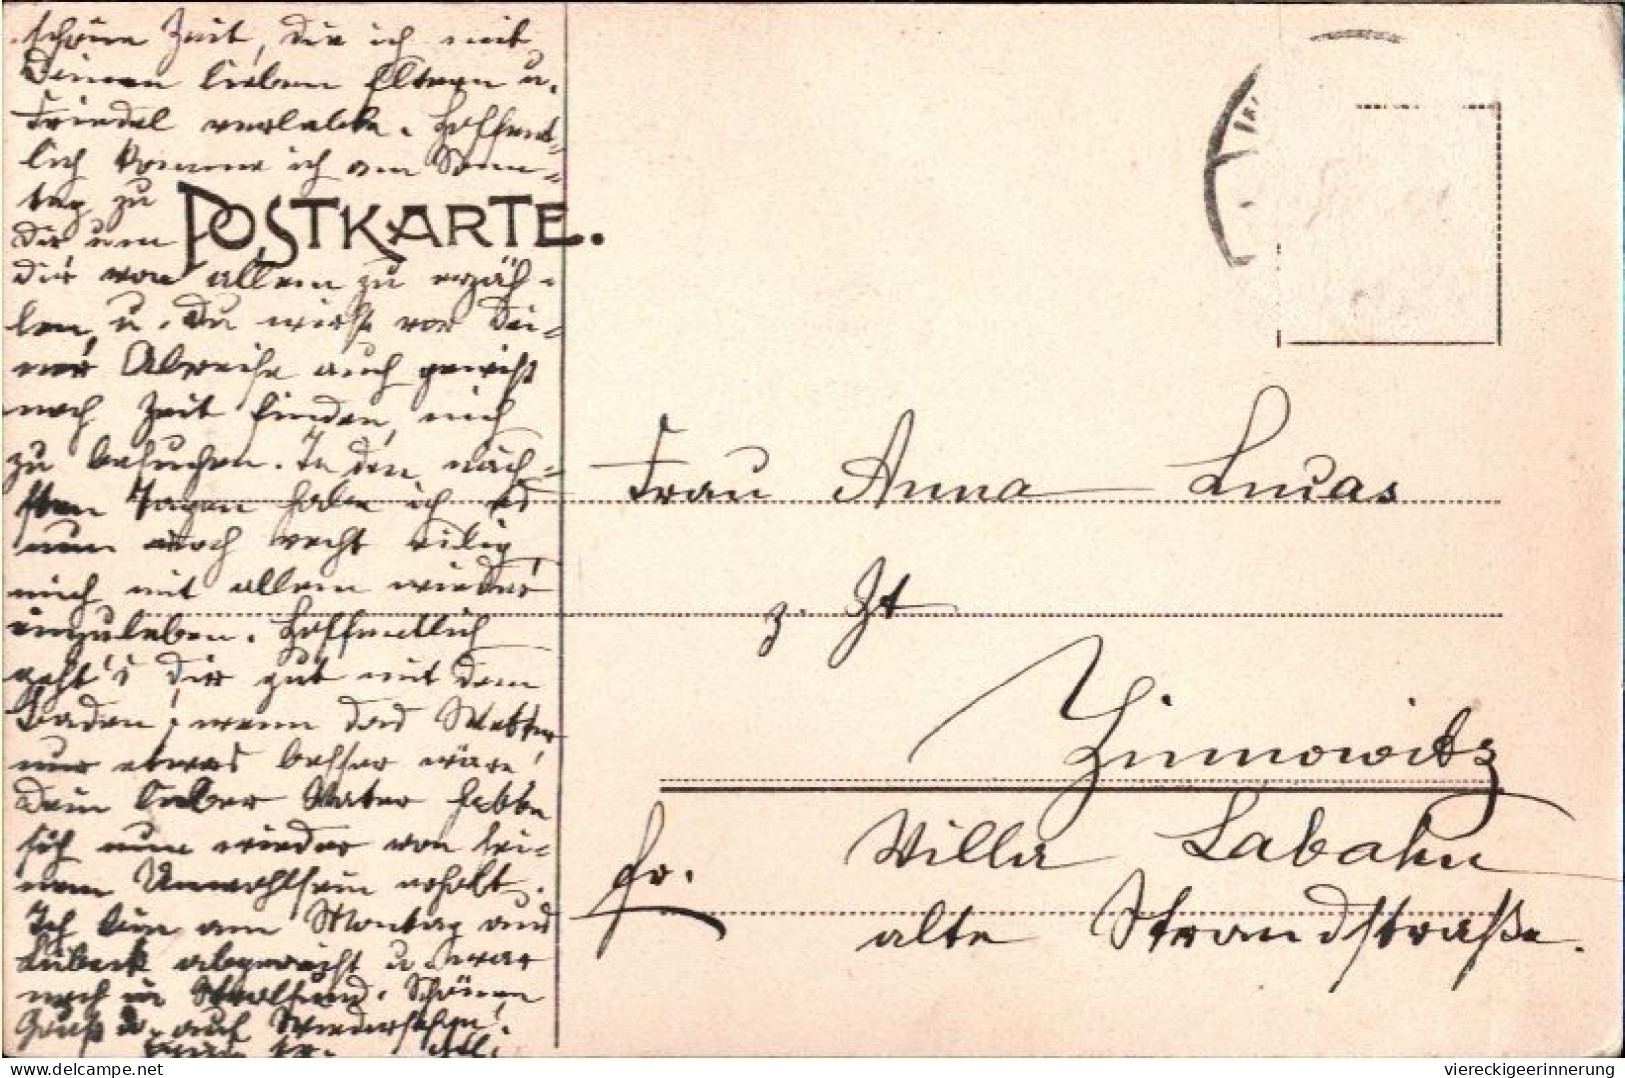 schöne Zeit, die ich mit
Deinen lieben Eltern u.
Friedel verlebte. Hoffent=
lich komme ich am Sonn=
tag zu
Dir um
POSTKARTE.
Dir von allem zu erzäh-
len, u. Du wirst vor Dei=
ner Abreise auch gewiß
noch Zeit finden, mich
zu besuchen. In den näch=
sten Tagen habe ich es
nun noch recht eilig,
mich mit allem wieder
einzuleben. Hoffentlich
geht's Dir gut mit dem
Baden; wenn das Wetter
nur etwas besser wäre!
Dein lieber Vater hatte
sich nun wieder von sei-
nem Unwohlsein erholt.
Ich bin am Montag aus
Lübeck abgereist u. war
noch in Stralsund. Schönen
Gruß u. auf Wiedersehen!
Frau Anna Lucas
z. Zt
Zinnowitz
fr.
Villa Labahn
alte Strandstraße.
delcampe.net
viereckigeerinnerung